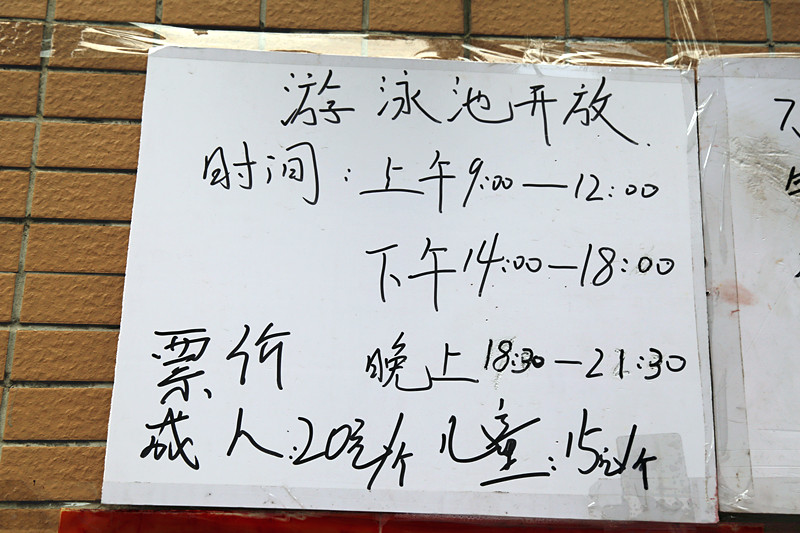 游泳池开放
时间：上午9:00—12:00
下午14:00—18:00
票价 晚上18:30—21:30
成人:20元/个 儿童:15元/个